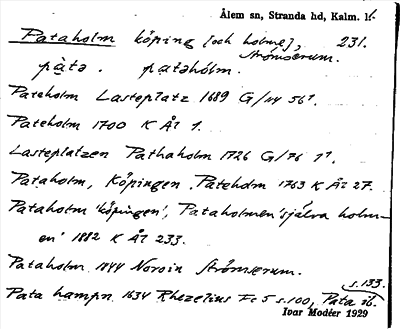 Ålem sn, Stranda hd, Kalm. l.
Pataholm köping [och holme], 231.
Strömserum.
pàta . patahólm.
Pateholm Lasteplatz 1689 G/114 56¹.
Pateholm 1700 K Ål 1.
Lasteplatzen Pathaholm 1726 G/76 1¹.
Pataholm, Köpingen Pateholm 1763 K Ål 27.
Pataholm 'köpingen', Pataholmen 'själva holm-
en' 1882 K Ål 233.
Pataholm 1844 Norvin Strömserum.
Pata hampn 1634 Rhezelius Fc 5 s.100, Pata ib. s.133.
Ivar Modéer 1929